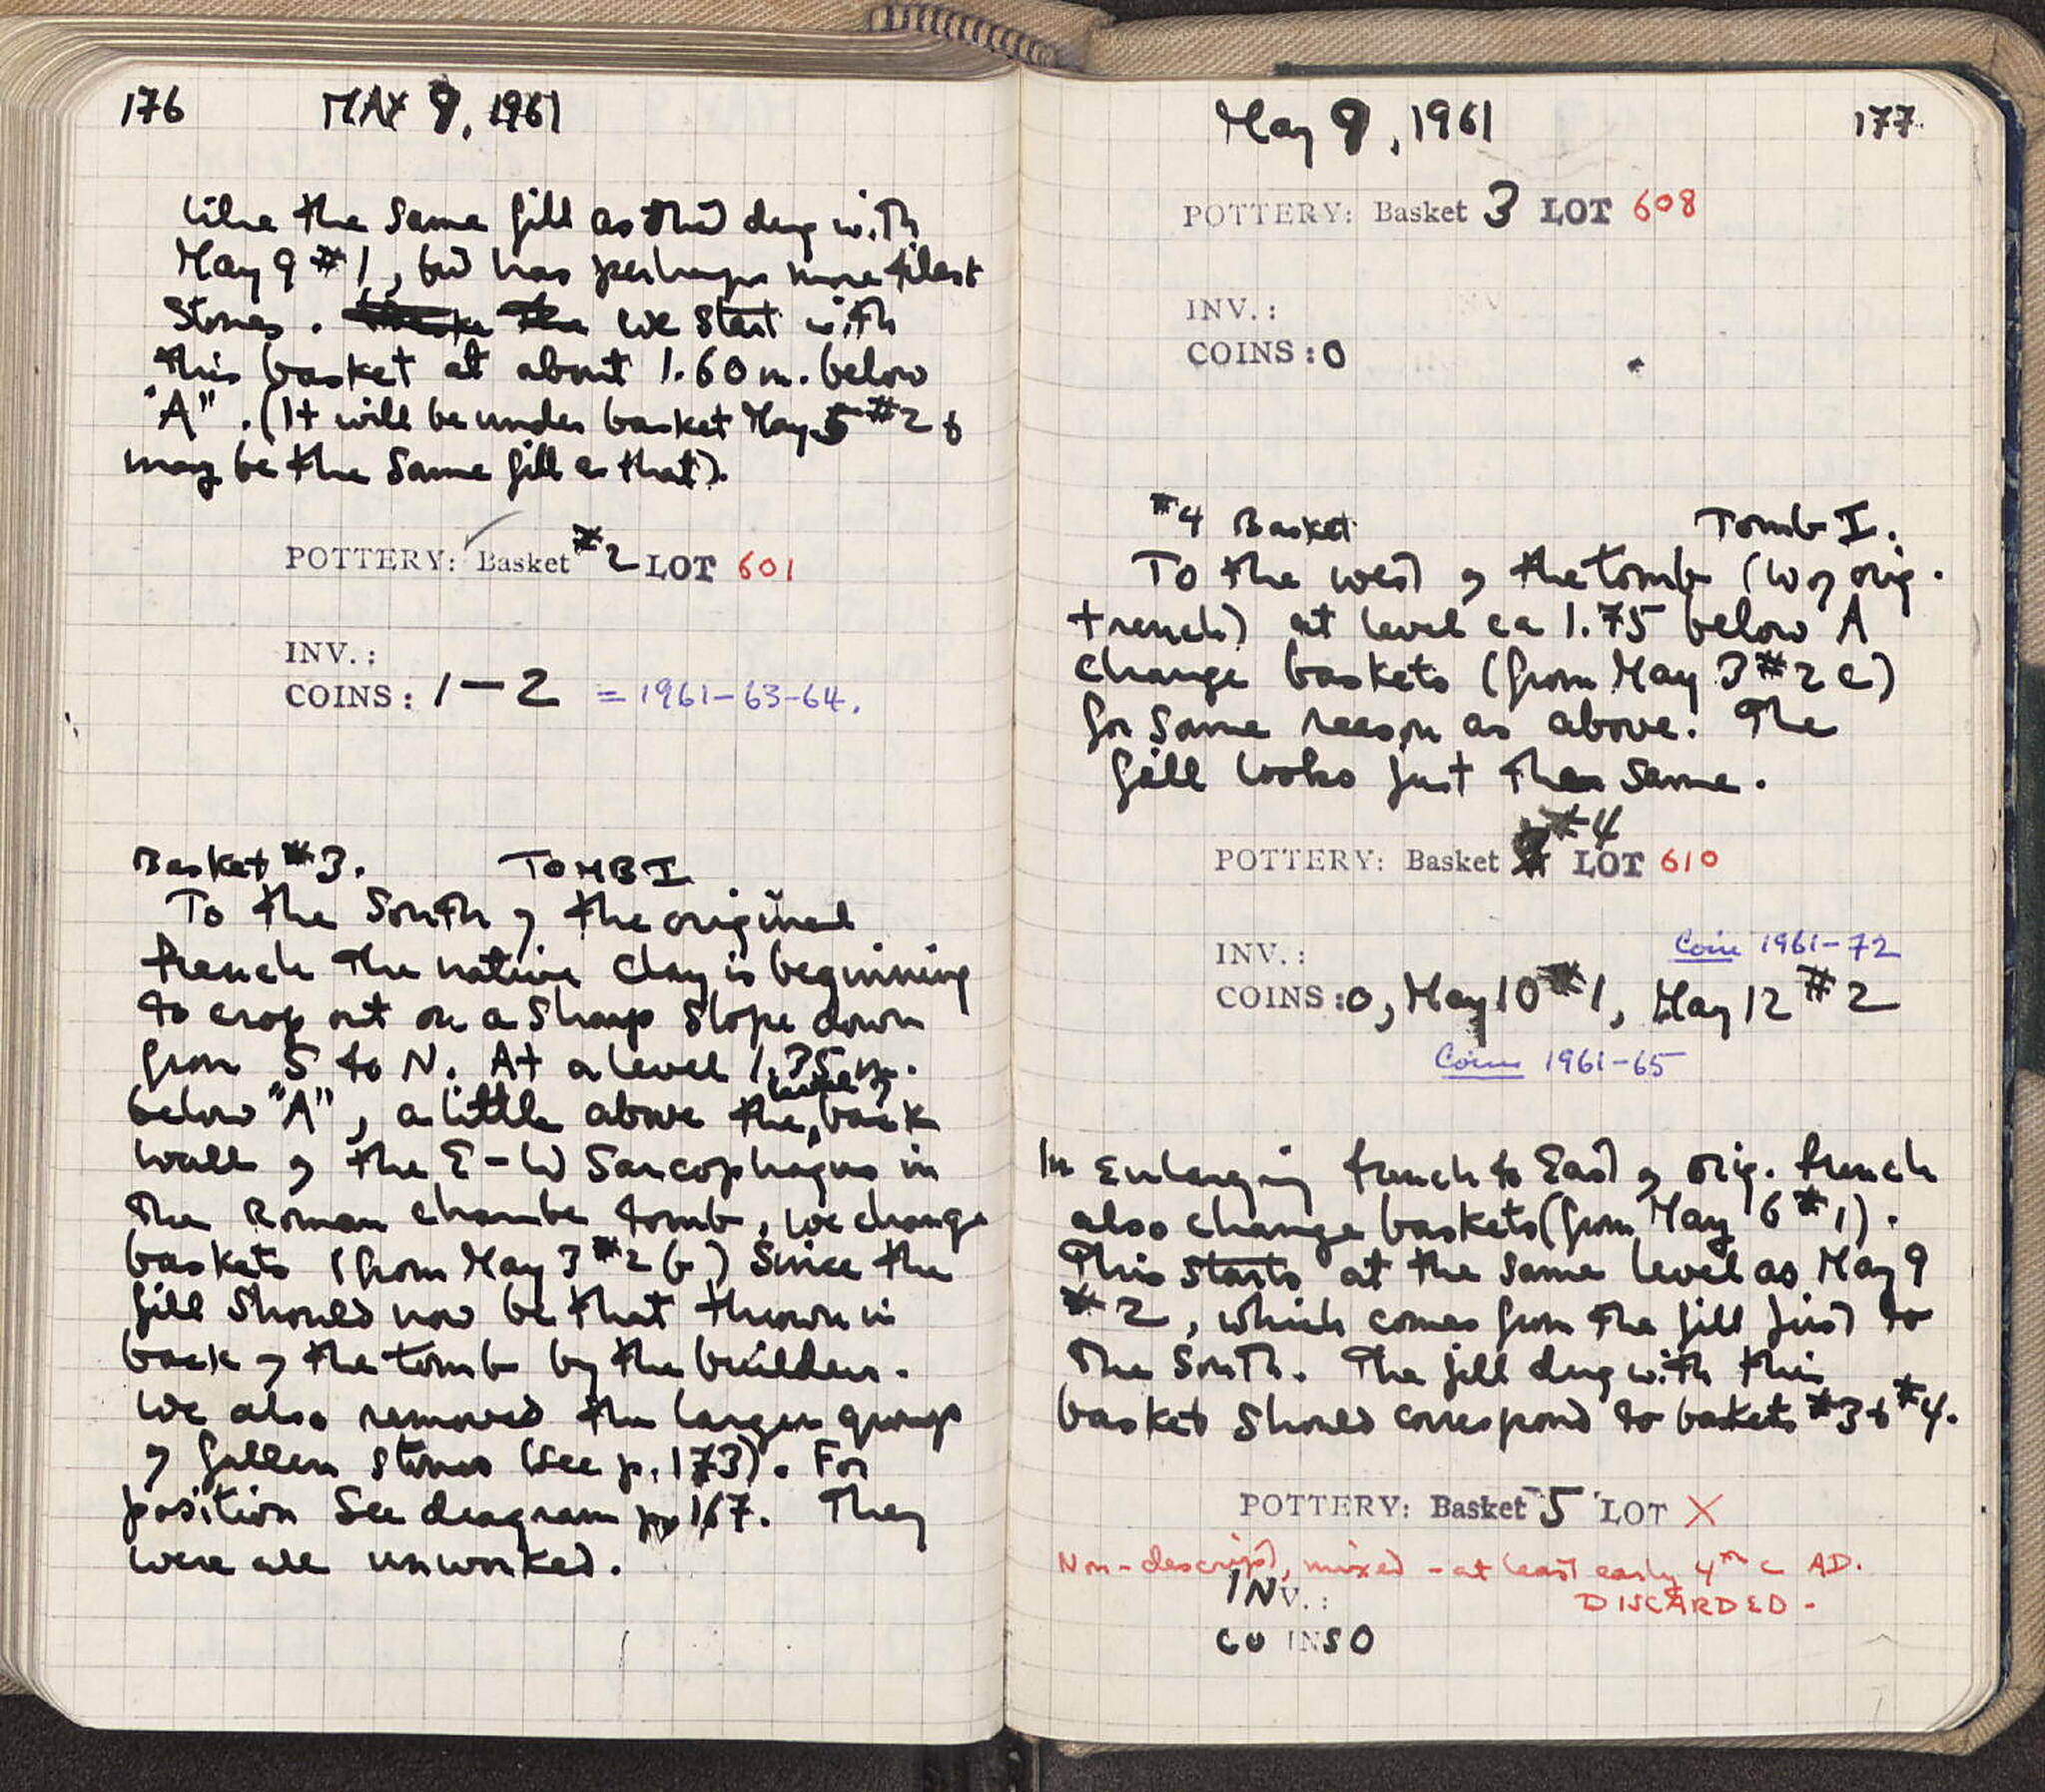 176 MAY 9, 1961
like the same fill as that dug with
May 9 #1, but has perhaps more
stones. we start with
this basket at about 1.60 m. below
"A". (It will be under basket May 5 #2 &
may be the same fill as that).
POTTERY: Basket #2 LOT 601
INV.:
COINS: 1-2 = 1961-63-64.
Basket #3. TOMB I
To the South of the original
trench the native clay is beginning
to crop out on a sharp slope down
from S to N. At a level 1.35 m.
below "A", a little above the level of back
wall of the E-W Sarcophagus in
the Roman chamber tomb, we change
baskets (from May 3 #2 b) since the
fill should now be that thrown in
back of the tomb by the builders.
We also removed the larger group
of fallen stones (see p. 173). For
position see diagram p 167. They
were all unworked.
May 9, 1961 177
POTTERY: Basket 3 LOT 608
INV.:
COINS: 0
#4 Basket Tomb I.
To the west of the tomb (W of orig.
trench) at level ca 1.75 below A
change baskets (from May 3 #2 c)
for same reason as above. The
fill looks just the same.
POTTERY: Basket #4 LOT 610
INV.: Coin 1961-72
COINS: 0, May 10 #1, May 12 #2
Coin 1961-65
In Enlarging trench to East of orig. trench
also change baskets (from May 6 #1).
This starts at the same level as May 9
#2, which comes from the fill just to
the South. The fill dug with this
basket should correspond to baskets #3 & #4.
POTTERY: Basket 5 LOT X
Non-descript, mixed - at least early 4th c AD.
DISCARDED -
INV.:
COINS 0